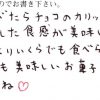 りでお書き下さい。
べたらチョコのカリッ
した食感が美味し
くりいくらでも食べら
も美味しいお菓
ね♡